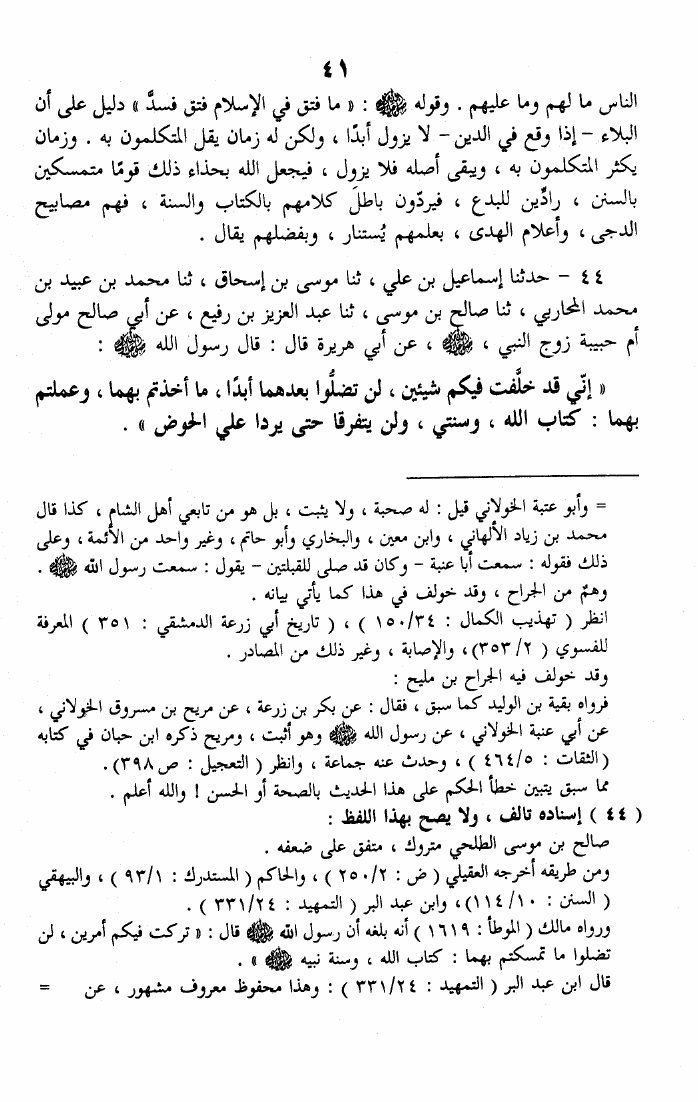 ٤١
الناس ما لهم وما عليهم . وقوله ﷺ : « ما فتق في الإسلام فتق فسدَّ » دليل على أن
البلاء – إذا وقع في الدين – لا يزول أبدًا ، ولكن له زمان يقل المتكلمون به . وزمان
يكثر المتكلمون به ، ويبقى أصله فلا يزول ، فيجعل الله بحذاء ذلك قومًا متمسكين
بالسنن ، رادِّين للبدع ، فيردّون باطلَ كلامهم بالكتاب والسنة ، فهم مصابيح
الدجى ، وأعلام الهدى ، بعلمهم يُستنار ، وبفضلهم يقال .
٤٤ – حدثنا إسماعيل بن علي ، ثنا موسى بن إسحاق ، ثنا محمد بن عبيد بن
محمد المحاربي ، ثنا صالح بن موسى ، ثنا عبد العزيز بن رفيع ، عن أبي صالح مولى
أم حبيبة زوج النبي ، ﷺ ، عن أبي هريرة قال : قال رسول الله ﷺ :
« إنّي قد خلَّفت فيكم شيئين ، لن تضلُّوا بعدهما أبدًا ، ما أخذتم بهما ، وعملتم
بهما : كتاب الله ، وسنتي ، ولن يتفرقا حتى يردا علي الحوض » .
= وأبو عتبة الخولاني قيل : له صحبة ، ولا يثبت ، بل هو من تابعي أهل الشام ، كذا قال
محمد بن زياد الألهاني ، وابن معين ، والبخاري وأبو حاتم ، وغير واحد من الأئمة ، وعلى
ذلك فقوله : سمعت أبا عنبة – وكان قد صلى للقبلتين – يقول : سمعت رسول الله ﷺ .
وهمٌ من الجراح ، وقد خولف في هذا كما يأتي بيانه .
انظر ( تهذيب الكمال : ١٥٠/٣٤ ) ، ( تاريخ أبي زرعة الدمشقي : ٣٥١ ) المعرفة
للفسوي ( ٣٥٣/٢)، والإصابة ، وغير ذلك من المصادر .
وقد خولف فيه الجراح بن مليح :
فرواه بقية بن الوليد كما سبق ، فقال : عن بكر بن زرعة ، عن مريح بن مسروق الخولاني ،
عن أبي عنبة الخولاني ، عن رسول الله ﷺ وهو أثبت ، ومريح ذكره ابن حبان في كتابه
(الثقات : ٤٦٤/٥ ) ، وحدث عنه جماعة ، وانظر ( التعجيل : ص٣٩٨).
مما سبق يتبين خطأ الحكم على هذا الحديث بالصحة أو الحسن ! والله أعلم .
( ٤٤ ) إسناده تالف ، ولا يصح بهذا اللفظ :
صالح بن موسى الطلحي متروك ، متفق على ضعفه .
ومن طريقه أخرجه العقيلي ( ض : ٢٥٠/٢ ) ، والحاكم ( المستدرك : ٩٣/١ ) ، والبيهقي
( السنن : ١١٤/١٠)، وابن عبد البر ( التمهيد : ٣٣١/٢٤ ) .
ورواه مالك ( الموطأ : ١٦١٩ ) أنه بلغه أن رسول الله ﷺ قال : « تركت فيكم أمرين ، لن
تضلوا ما تمسكتم بهما : كتاب الله ، وسنة نبيه ﷺ » .
قال ابن عبد البر ( التمهيد : ٣٣١/٢٤ ) : وهذا محفوظ معروف مشهور ، عن =